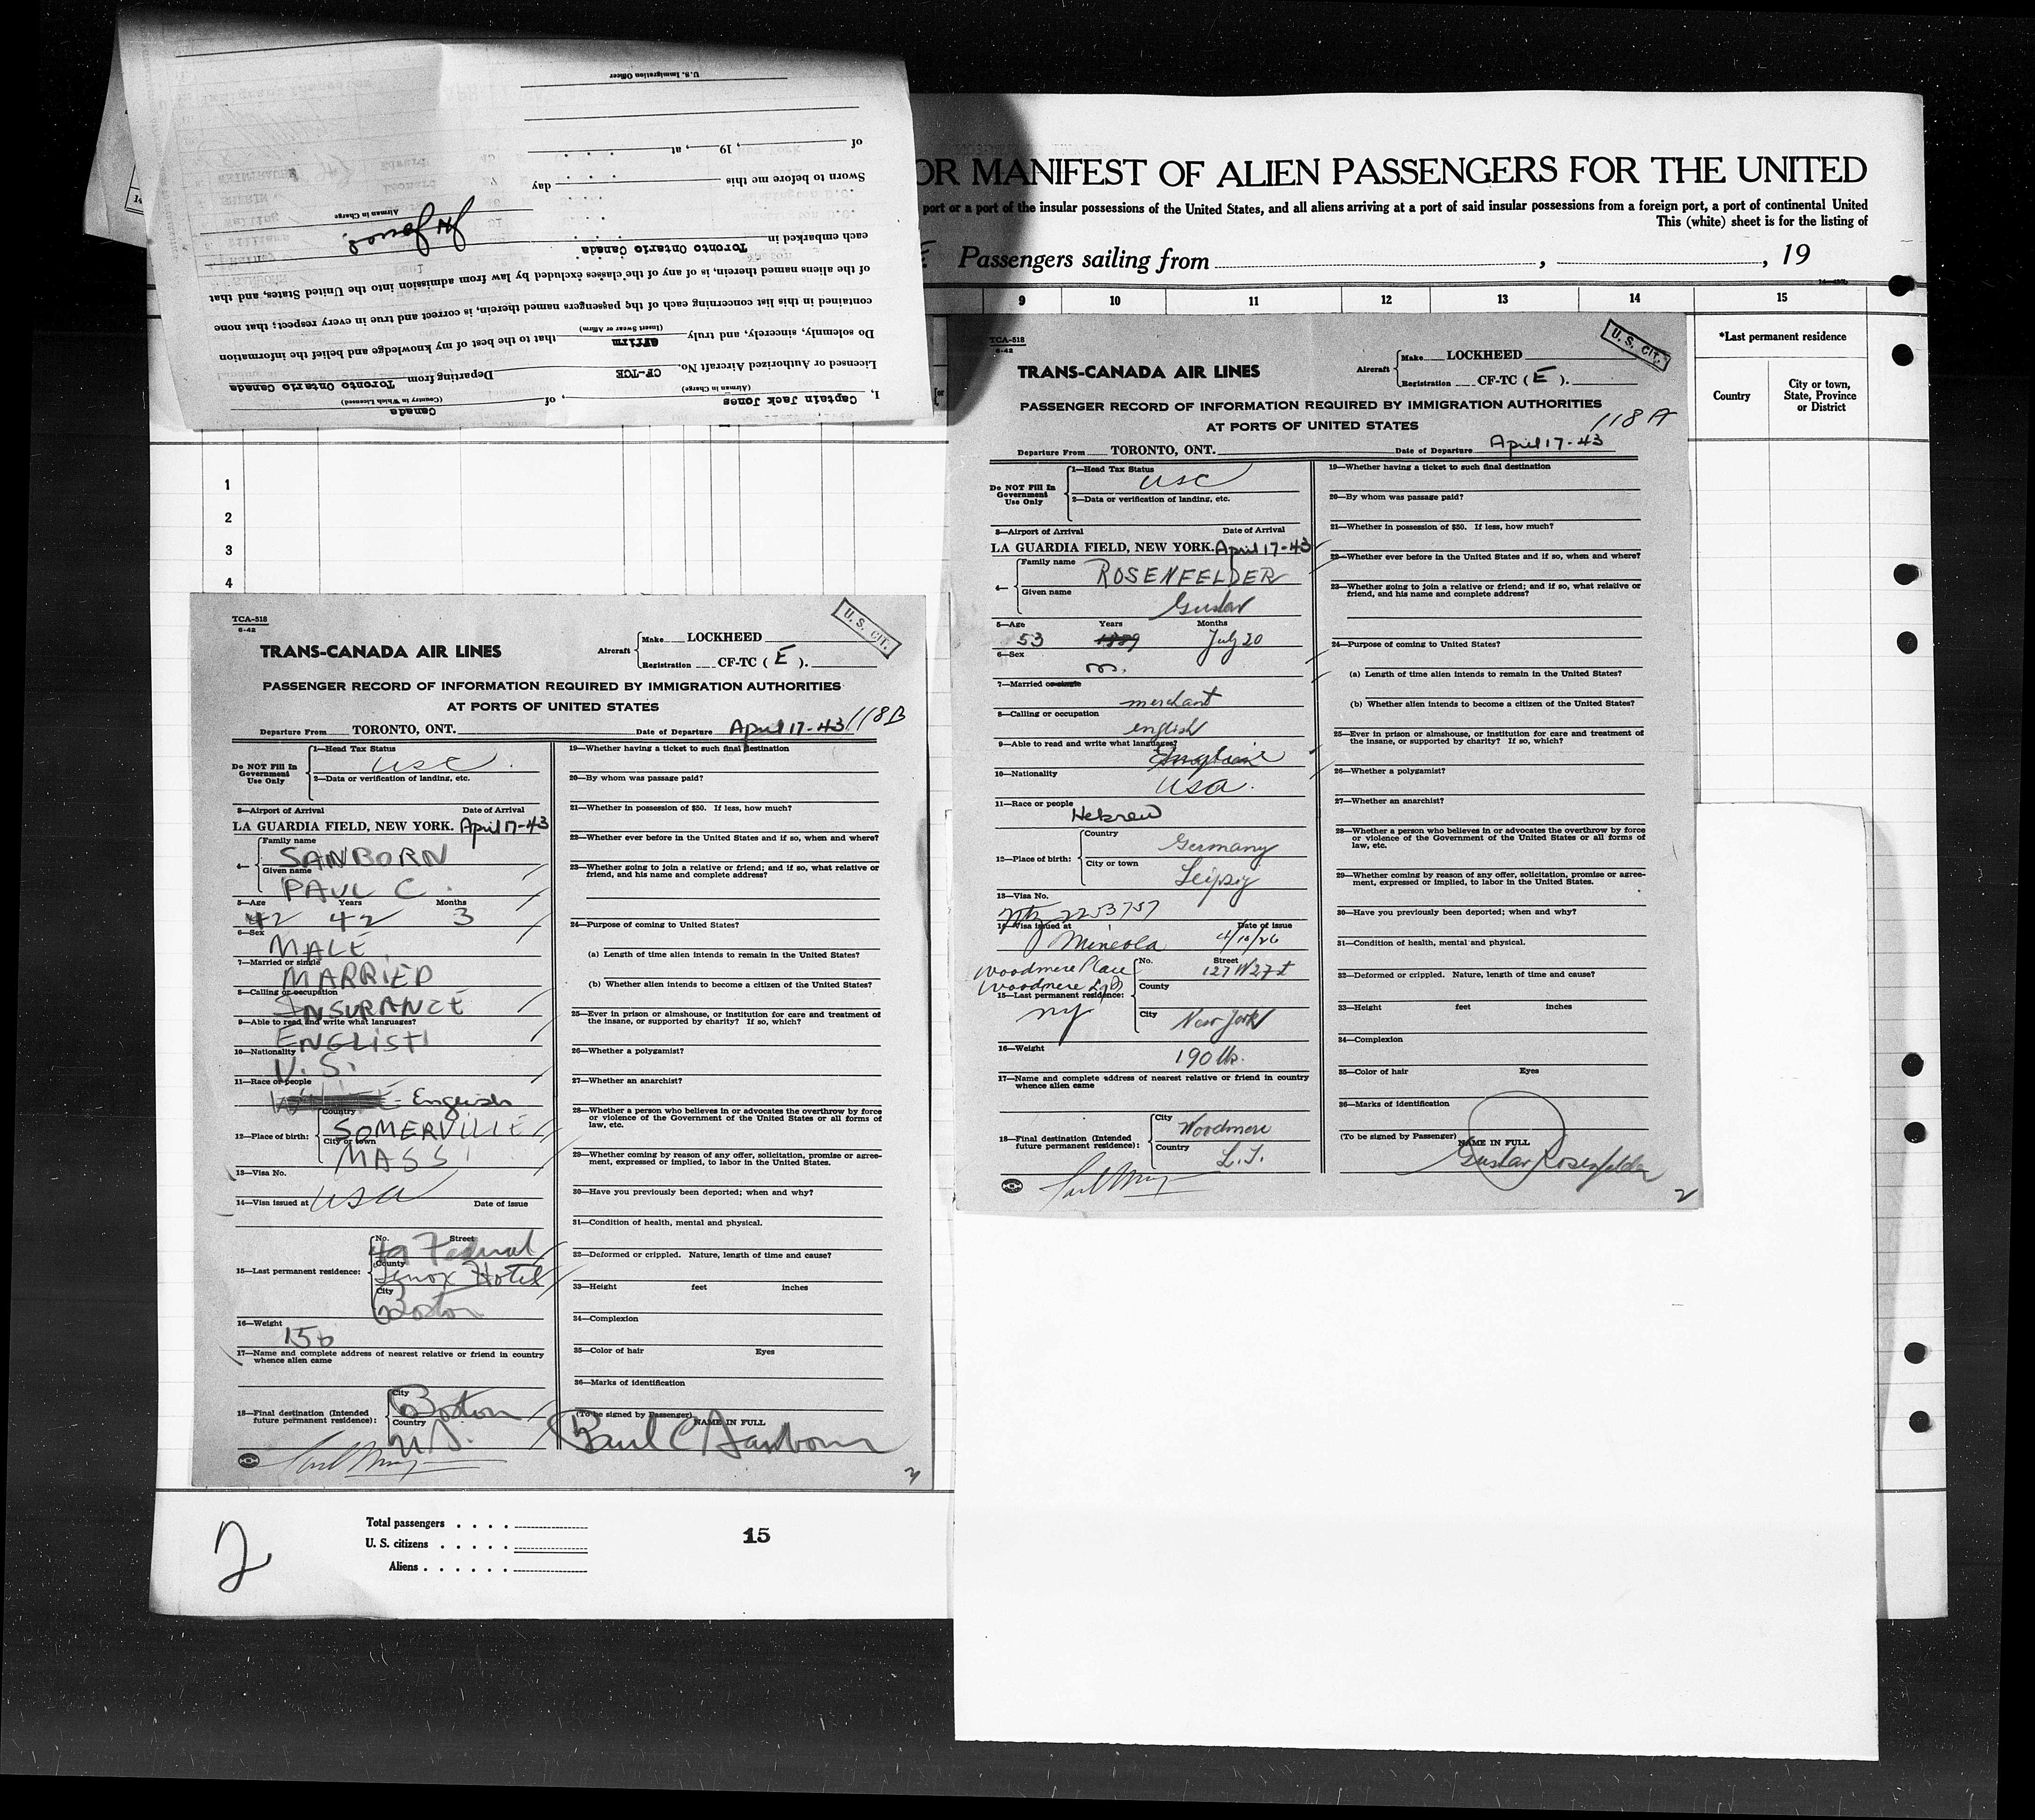 U.S. Immigration Officer
of , 19 , at
Sworn to before me this day
Airman in Charge
JH Jones.
each embarked in Toronto Ontario Canada
of the aliens named therein, is of any of the classes excluded by law from admission into the United States, and that
contained in this list concerning each of the passengers named therein, is correct and true in every respect; that none
Do solemnly, sincerely, and truly affirm that to the best of my knowledge and belief the information
(Insert Swear or Affirm)
Licensed or Authorized Aircraft No. CF-TCE Departing from Toronto Ontario Canada
(Airman in Charge) (Country in Which Licensed)
I, Captain Jack Jones , of Canada
OR MANIFEST OF ALIEN PASSENGERS FOR THE UNITED
port or a port of the insular possessions of the United States, and all aliens arriving at a port of said insular possessions from a foreign port, a port of continental United
This (white) sheet is for the listing of
Passengers sailing from , , 19
9 10 11 12 13 14 15
*Last permanent residence
Country
City or town, State, Province or District
1
2
3
4
TCA-518
6-42
U. S. CIT.
TRANS-CANADA AIR LINES
Aircraft Make LOCKHEED
Registration CF-TC ( E ).
PASSENGER RECORD OF INFORMATION REQUIRED BY IMMIGRATION AUTHORITIES
AT PORTS OF UNITED STATES
118B
Departure From TORONTO, ONT. Date of Departure April 17-43
Do NOT Fill In Government Use Only
1—Head Tax Status
USC
2—Data or verification of landing, etc.
3—Airport of Arrival Date of Arrival
LA GUARDIA FIELD, NEW YORK. April 17-43
4— Family name
SANBORN
Given name
PAUL C.
5—Age Years Months
42 42 3
6—Sex
MALE
7—Married or single
MARRIED
8—Calling or occupation
INSURANCE
9—Able to read and write what languages?
ENGLISH
10—Nationality
U.S.
11—Race or people
English
12—Place of birth: Country
SOMERVILLE
City or town
MASS
13—Visa No.
14—Visa issued at USA Date of issue
15—Last permanent residence: No. Street
49 Federal
County
Lenox Hotel
City
Boston
16—Weight
150
17—Name and complete address of nearest relative or friend in country whence alien came
18—Final destination (Intended future permanent residence): City
Boston
Country
U.S.
19—Whether having a ticket to such final destination
20—By whom was passage paid?
21—Whether in possession of $50. If less, how much?
22—Whether ever before in the United States and if so, when and where?
23—Whether going to join a relative or friend; and if so, what relative or
friend, and his name and complete address?
24—Purpose of coming to United States?
(a) Length of time alien intends to remain in the United States?
(b) Whether alien intends to become a citizen of the United States?
25—Ever in prison or almshouse, or institution for care and treatment of
the insane, or supported by charity? If so, which?
26—Whether a polygamist?
27—Whether an anarchist?
28—Whether a person who believes in or advocates the overthrow by force
or violence of the Government of the United States or all forms of
law, etc.
29—Whether coming by reason of any offer, solicitation, promise or agree-
ment, expressed or implied, to labor in the United States.
30—Have you previously been deported; when and why?
31—Condition of health, mental and physical.
32—Deformed or crippled. Nature, length of time and cause?
33—Height feet inches
34—Complexion
35—Color of hair Eyes
36—Marks of identification
(To be signed by Passenger) NAME IN FULL
Paul C Sanborn
2
TCA-518
6-42
U. S. CIT.
TRANS-CANADA AIR LINES
Aircraft Make LOCKHEED
Registration CF-TC ( E ).
PASSENGER RECORD OF INFORMATION REQUIRED BY IMMIGRATION AUTHORITIES
AT PORTS OF UNITED STATES
118A
Departure From TORONTO, ONT. Date of Departure April 17-43
Do NOT Fill In Government Use Only
1—Head Tax Status
USC
2—Data or verification of landing, etc.
3—Airport of Arrival Date of Arrival
LA GUARDIA FIELD, NEW YORK. April 17-43
4— Family name
ROSENFELDER
Given name
Gustav
5—Age Years Months
53 1889 July 20
6—Sex
m.
7—Married or single
merchant
8—Calling or occupation
english
9—Able to read and write what languages?
10—Nationality
USA.
11—Race or people
Hebrew
12—Place of birth: Country
Germany
City or town
Leipzig
13—Visa No.
2253757
14—Visa issued at Date of issue
Mineola 4/10/26
Woodmere Place
Woodmere
NY
15—Last permanent residence: No. Street
127 W 27 St
County
City
New York
16—Weight
190 lb.
17—Name and complete address of nearest relative or friend in country whence alien came
18—Final destination (Intended future permanent residence): City
Woodmere
Country
L.I.
19—Whether having a ticket to such final destination
20—By whom was passage paid?
21—Whether in possession of $50. If less, how much?
22—Whether ever before in the United States and if so, when and where?
23—Whether going to join a relative or friend; and if so, what relative or
friend, and his name and complete address?
24—Purpose of coming to United States?
(a) Length of time alien intends to remain in the United States?
(b) Whether alien intends to become a citizen of the United States?
25—Ever in prison or almshouse, or institution for care and treatment of
the insane, or supported by charity? If so, which?
26—Whether a polygamist?
27—Whether an anarchist?
28—Whether a person who believes in or advocates the overthrow by force
or violence of the Government of the United States or all forms of
law, etc.
29—Whether coming by reason of any offer, solicitation, promise or agree-
ment, expressed or implied, to labor in the United States.
30—Have you previously been deported; when and why?
31—Condition of health, mental and physical.
32—Deformed or crippled. Nature, length of time and cause?
33—Height feet inches
34—Complexion
35—Color of hair Eyes
36—Marks of identification
(To be signed by Passenger) NAME IN FULL
Gustav Rosenfelder
2
2
Total passengers
U. S. citizens
Aliens
15